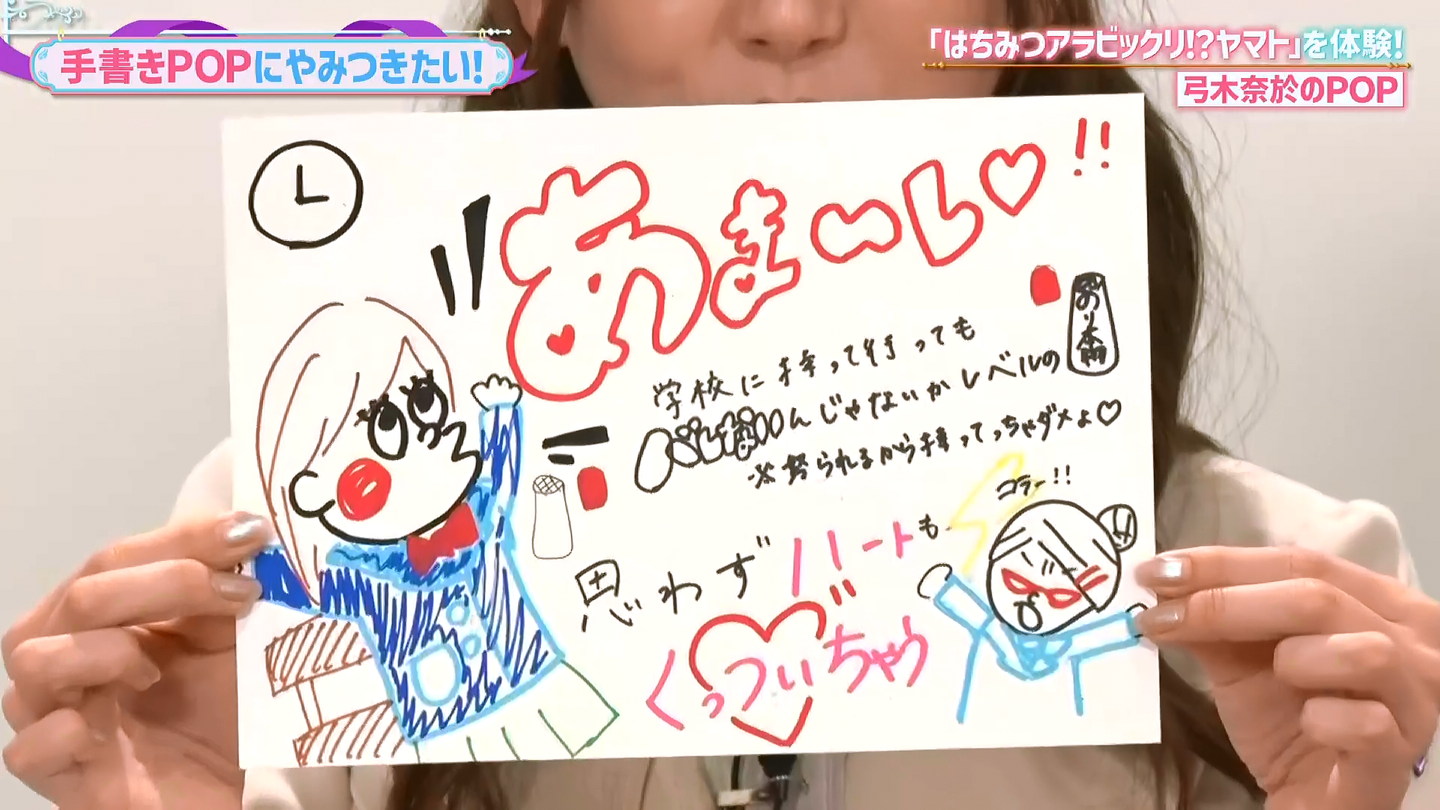 手書きPOPにやみつきたい!
「はちみつアラビックリ!?ヤマト」を体験!
弓木奈於のPOP
あまーい♡!!
のり本舗
学校に持って行っても
バレないんじゃないかレベルの
※怒られるから持ってっちゃダメよ♡
コラー!!
思わずハートも
くっついちゃう